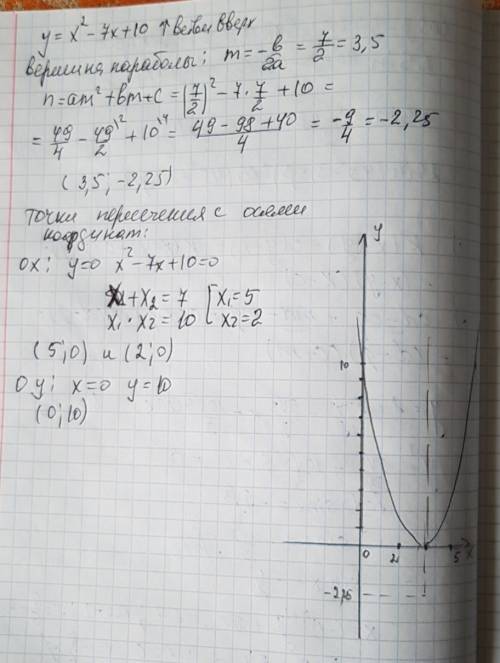 y = x² - 7x + 10 ↑ ветви вверх
вершина параболы: m = -b/2a = 7/2 = 3,5
n = am² + bm + c = (7/2)² - 7 · 7/2 + 10 =
= 49/4 - 49\²/2 + 10\⁴ = (49 - 98 + 40)/4 = -9/4 = -2,25
(3,5; -2,25)
точки пересечения с осями
координат:
OX: y=0 x² - 7x + 10 = 0
x₁ + x₂ = 7 [x₁ = 5
x₁ · x₂ = 10 [x₂ = 2
(5; 0) и (2; 0)
Oy: x=0 y=10
(0; 10)
y
10
0 2 5 x